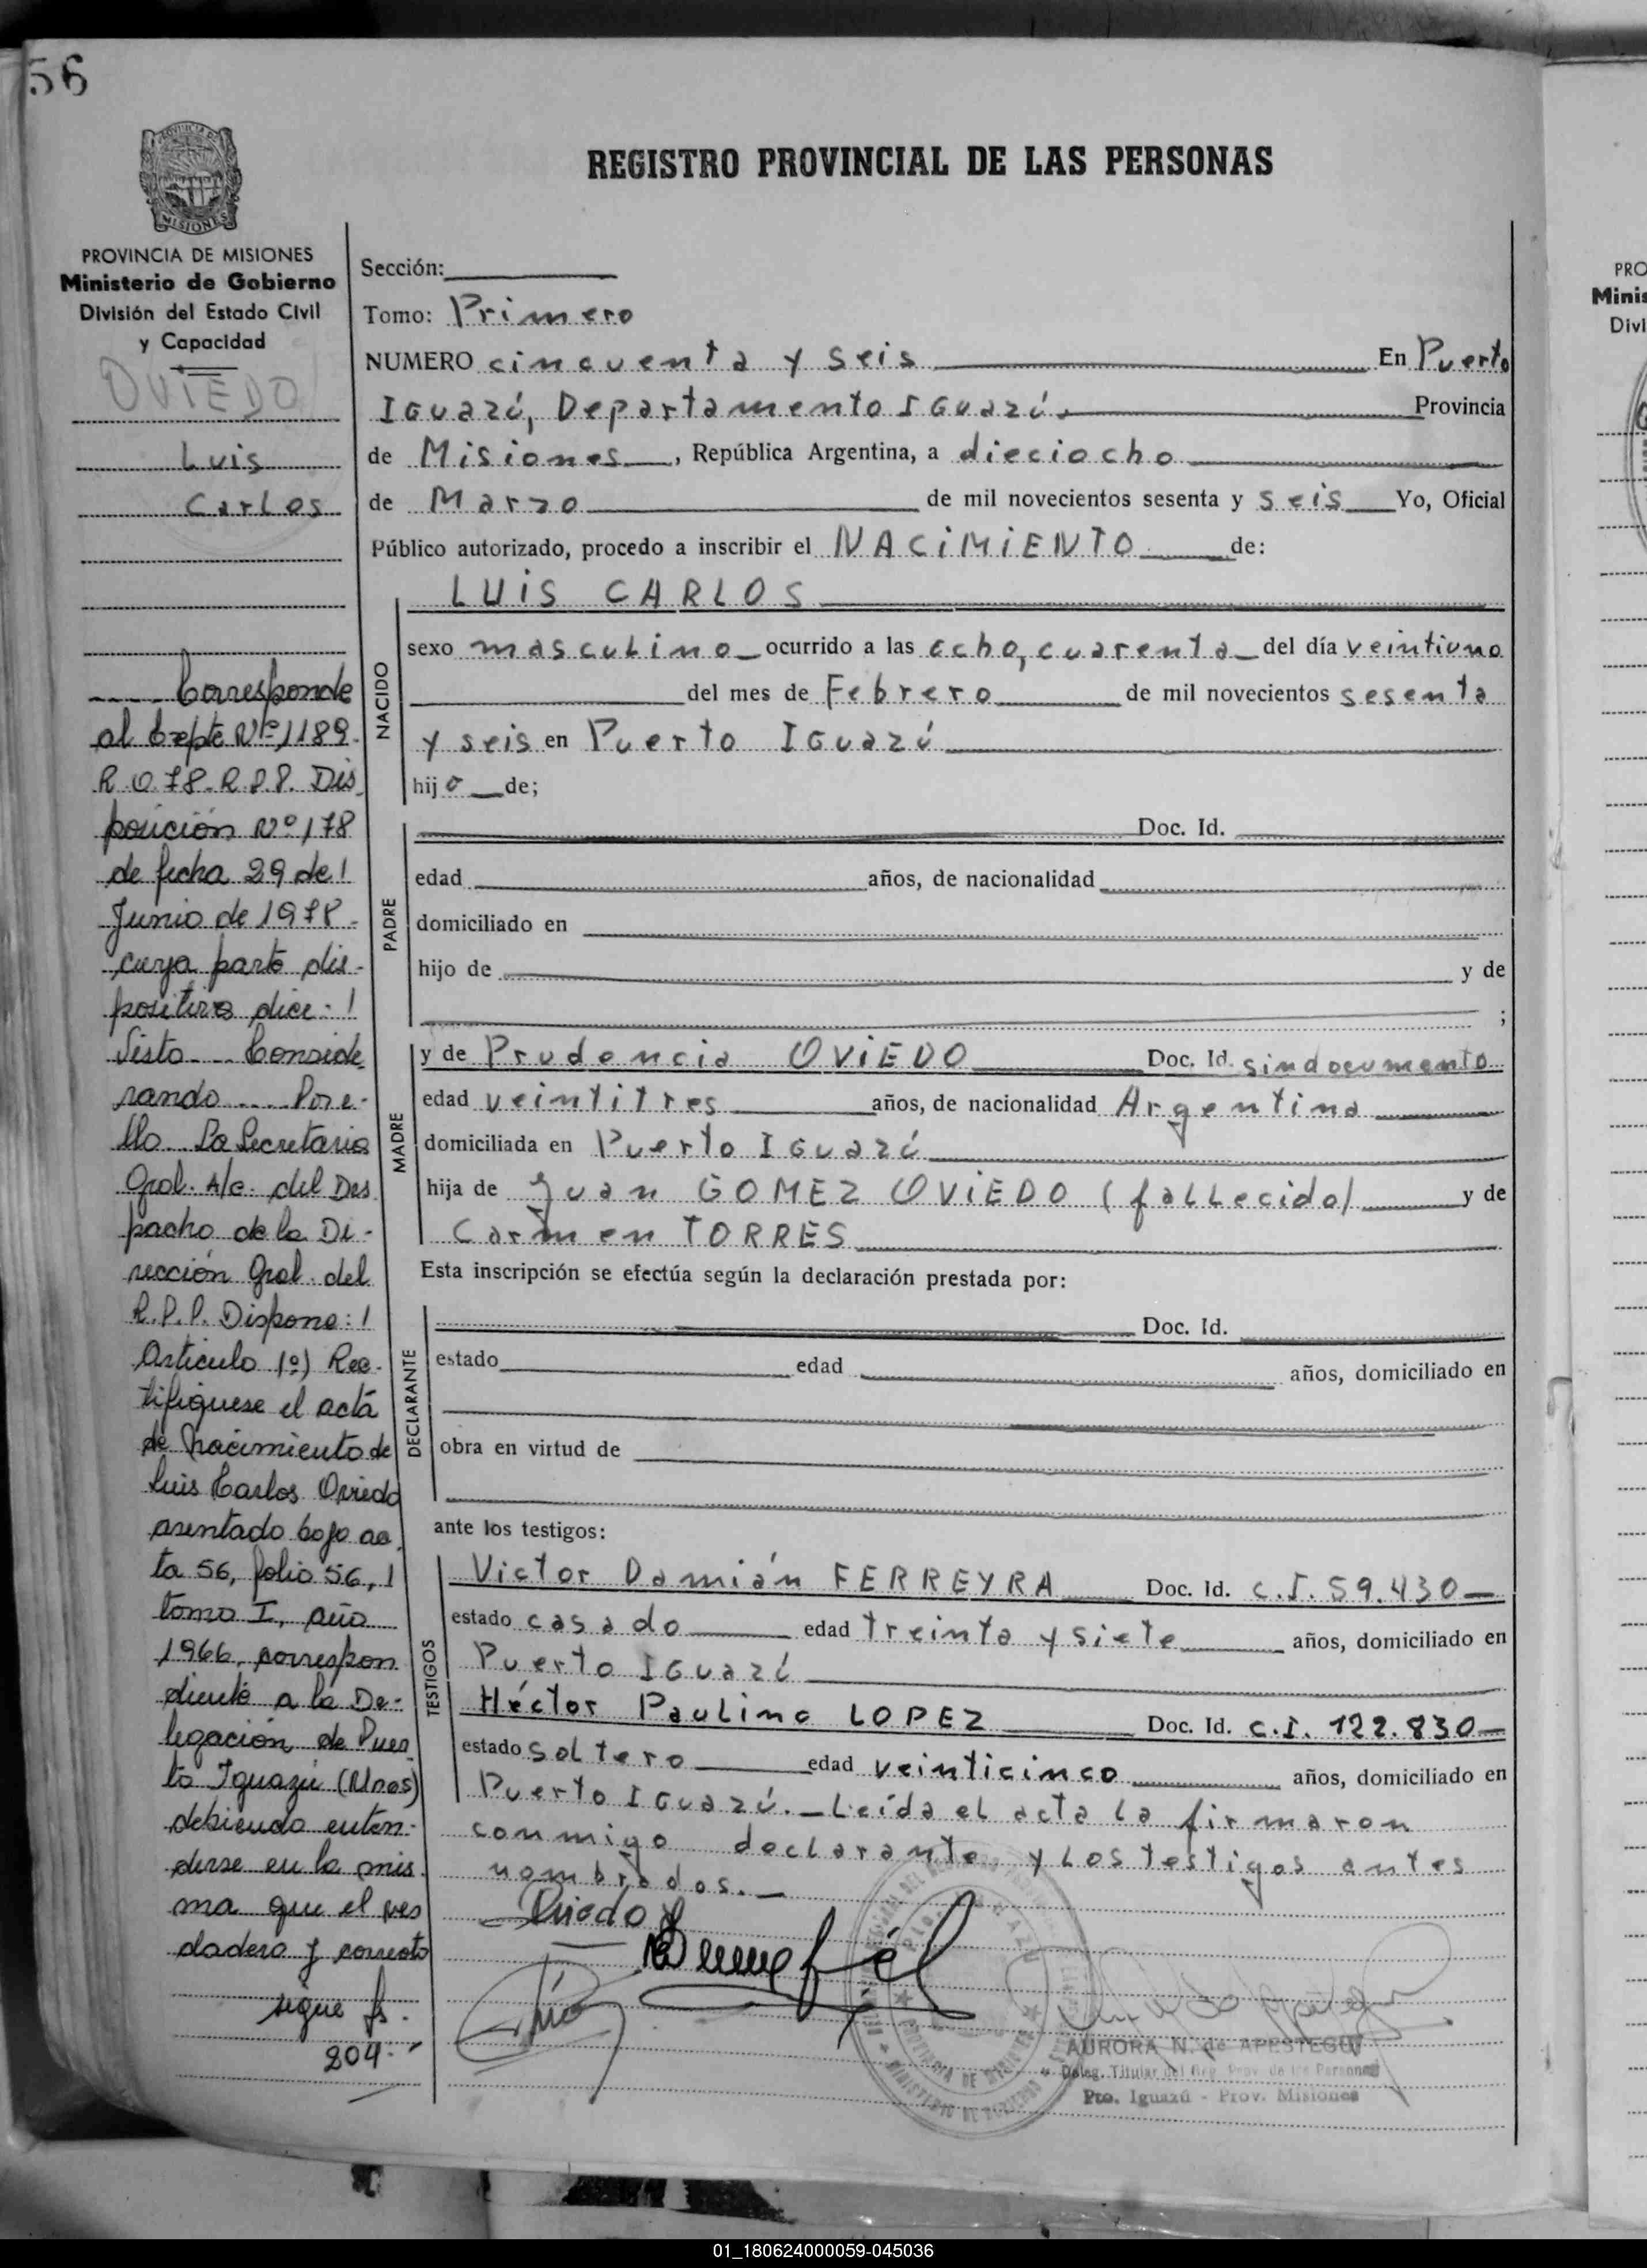 56
PROVINCIA DE MISIONES
REGISTRO PROVINCIAL DE LAS PERSONAS
PROVINCIA DE MISIONES
Ministerio de Gobierno
División del Estado Civil
y Capacidad
OVIEDO
Luis
Carlos
Corresponde
al Expte Nº 1189.
R.O. 78. R.P.P. Dis
posición Nº 178
de fecha 29 de
Junio de 1978
cuya parte dis-
positiva dice:
Visto ... Conside
rando .... Por e-
llo La Secretaria
Gral. A/c. del Des
pacho de la Di-
rección Gral. del
R.P.P. Dispone:
Articulo 1º) Rec-
tifiquese el acta
de nacimiento de
Luis Carlos Oviedo
asentado bajo ac
ta 56, folio 56,
tomo I, año
1966, correspon
diente a la De-
legación de Puer
to Iguazú (Mnes)
debiendo enten-
derse en la mis
ma que el ver
dadero y correcto
sigue fs.
204.
Sección:
Tomo: Primero
NUMERO cincuenta y seis En Puerto
Iguazú, Departamento Iguazú. Provincia
de Misiones, República Argentina, a dieciocho
de Marzo de mil novecientos sesenta y seis Yo, Oficial
Público autorizado, procedo a inscribir el NACIMIENTO de:
LUIS CARLOS
NACIDO
sexo masculino ocurrido a las ocho, cuarenta del día veintiuno
del mes de Febrero de mil novecientos sesenta
y seis en Puerto Iguazú
hijo de;
PADRE
Doc. Id.
edad años, de nacionalidad
domiciliado en
hijo de y de
;
MADRE
y de Prudencia OVIEDO Doc. Id. sin documento
edad veintitres años, de nacionalidad Argentina
domiciliada en Puerto Iguazú
hija de Juan GOMEZ OVIEDO (fallecido) y de
Carmen TORRES
Esta inscripción se efectúa según la declaración prestada por:
DECLARANTE
Doc. Id.
estado edad años, domiciliado en
obra en virtud de
ante los testigos:
TESTIGOS
Victor Damián FERREYRA Doc. Id. C.I. 59.430
estado casado edad treinta y siete años, domiciliado en
Puerto Iguazú
Héctor Paulino LOPEZ Doc. Id. C.I. 122.830
estado soltero edad veinticinco años, domiciliado en
Puerto Iguazú. Leída el acta la firmaron
conmigo declarante y los testigos antes
nombrados.
Oviedo
AURORA N. de APESTEGUI
Deleg. Titular del Reg. Prov. de las Personas
Pto. Iguazú - Prov. Misiones
PRO
Minis
Divi
01_180624000059-045036